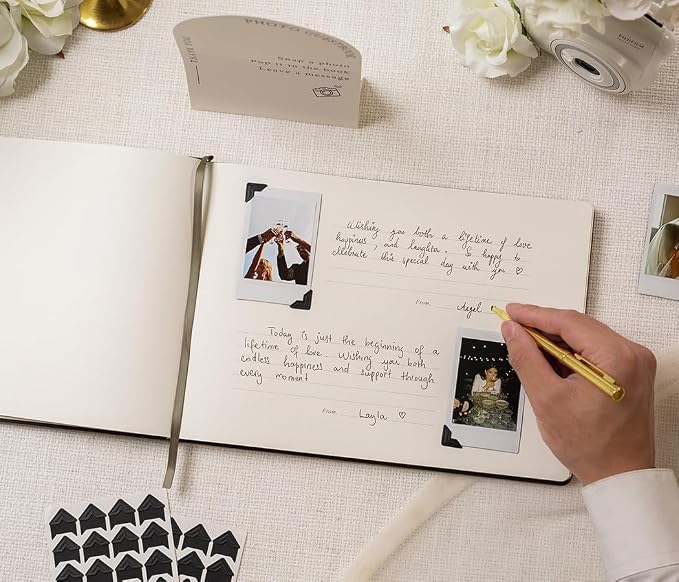 PHOTO GUESTBOOK
Snap a photo
Pop it in the book
Leave a message
THANK YOU
FUJIFILM
Wishing you both a lifetime of love
happiness, and laughter. So happy to
celebrate this special day with you ♡
From
Today is just the beginning of a
lifetime of love. Wishing you both
endless happiness and support through
every moment
From Layla ♡